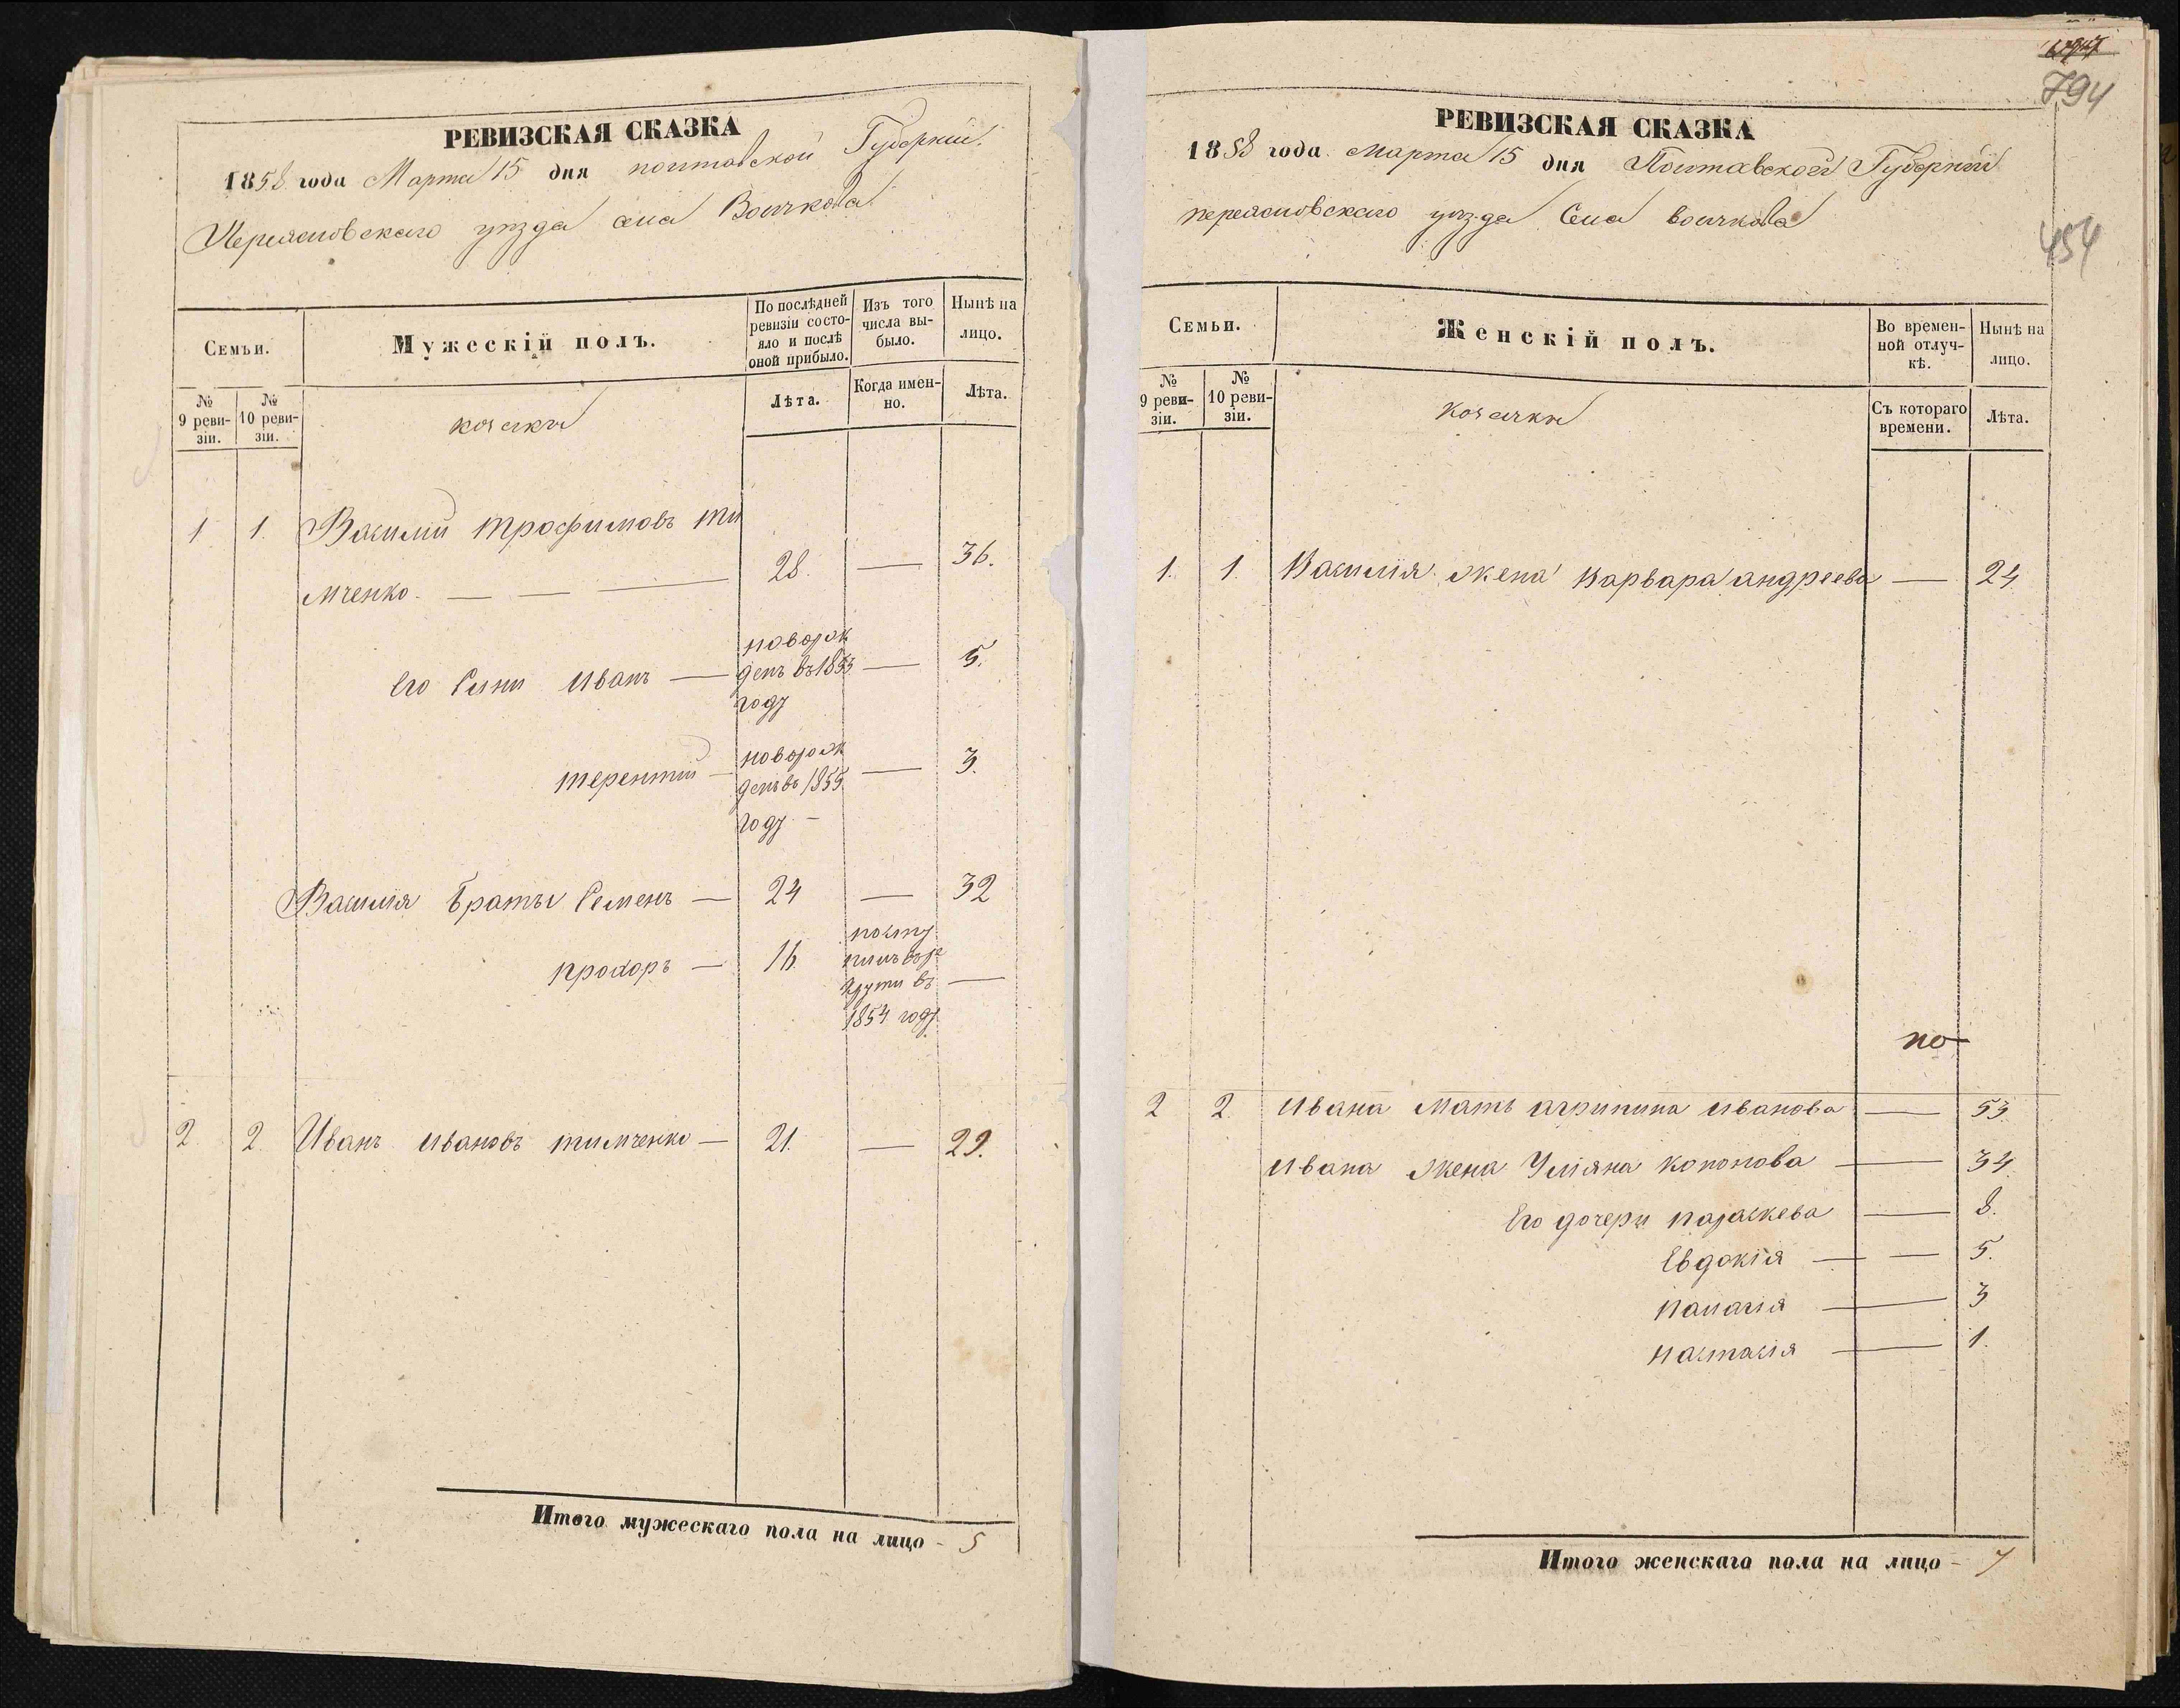 РЕВИЗСКАЯ СКАЗКА
1858 года Марта 15 дня полтавской Губернии
Переяславского уезда села Волчкова
Семьи.
Мужескій полъ.
По послѣдней ревизіи состояло и послѣ оной прибыло.
Изъ того числа выбыло.
Нынѣ на лицо.
№ 9 ревизіи.
№ 10 ревизіи.
козаки
Лѣта.
Когда именно.
Лѣта.
1 1. Василий трофимовъ ти
мченко — — — 28. — 36.
Его Сини Иванъ — новорож
денъ въ 1853 — 5.
году
терентий — новорож
денъ въ 1855 — 3.
году —
Василия Братьи Семенъ — 24 — 32
прохоръ — 16. посту
пилъ въ ре
круты въ —
1854 году
2. 2. Иванъ Ивановъ тимченко — 21. — 29.
Итого мужескаго пола на лицо - 5
6947
794
РЕВИЗСКАЯ СКАЗКА
1858 года марта 15 дня Полтавской Губернии
переясловского уезда Села волчкова
454
Семьи.
Женскій полъ.
Во временной отлучкѣ.
Нынѣ на лицо.
№ 9 ревизіи.
№ 10 ревизіи.
козачки
Съ котораго времени.
Лѣта.
1. 1. Василия жена варвара андреева — 24
по
2 2. Ивана мать агрипина иванова — 53
Ивана жена Улияна кононова — 34
Его дочери параскева — 8.
Евдокія — — 5.
палагія — 3
настасія — 1.
Итого женскаго пола на лицо - 7